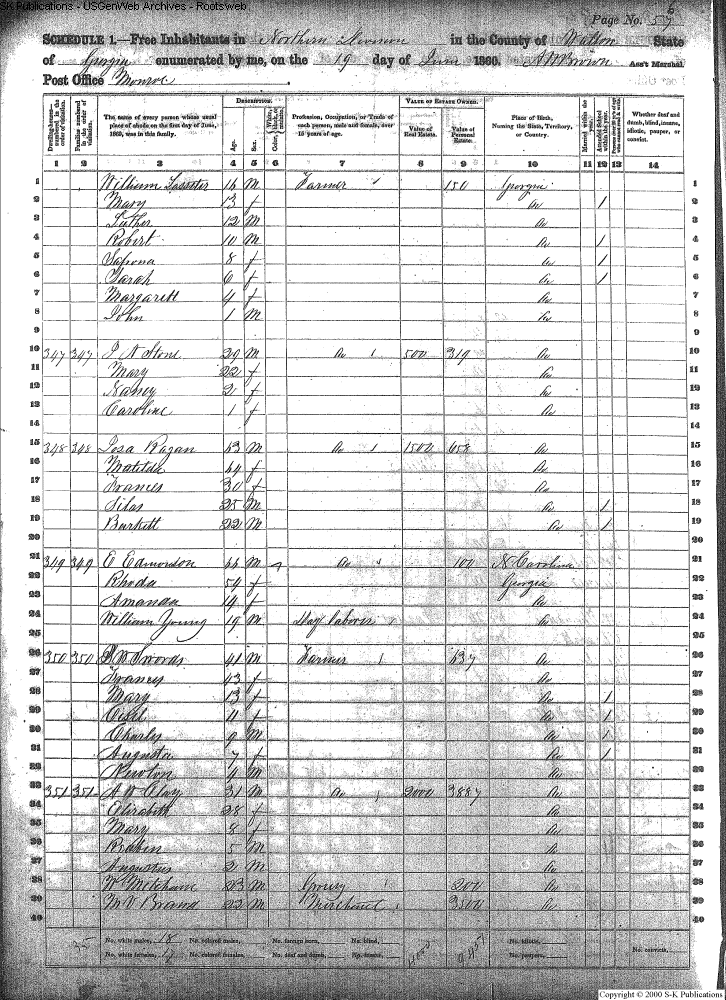 S-K Publications - USGenWeb Archives - Rootsweb
Page No. 57
SCHEDULE 1.—Free Inhabitants in Northern Division in the County of Walton State
of Georgia enumerated by me, on the 19 day of June 1860. Ass't Marshal
Post Office Monroe
DESCRIPTION. VALUE OF ESTATE OWNED.
Dwelling-houses—numbered in the order of visitation. Families numbered in the order of visitation. The name of every person whose usual place of abode on the first day of June, 1860, was in this family. Age. Sex. Color, White, black, or mulatto. Profession, Occupation, or Trade of each person, male and female, over 15 years of age. Value of Real Estate. Value of Personal Estate. Place of Birth, Naming the State, Territory, or Country. Married within the year. Attended School within the year. Whether deaf and dumb, blind, insane, idiotic, pauper, or convict.
1 2 3 4 5 6 7 8 9 10 11 12 13 14
1 William 16 M Farmer 150 Georgia 1
2 Mary 13 f Do 1 2
3 Luther 12 M Do 3
4 Robert 10 M Do 1 4
5 8 f Do 1 5
6 Sarah 6 f Do 1 6
7 Margarett 4 f Do 7
8 John 1 M Do 8
9 9
10 347 347 J N Stone 29 M Do 1 500 319 Do 10
11 Mary 22 f Do 11
12 Nancy 2 f Do 12
13 Caroline 1 f Do 13
14 14
15 348 348 Ragan 63 M Do 1 1500 658 Do 15
16 Matilda 64 f Do 16
17 Frances 30 f Do 17
18 Silas 25 M Do 1 18
19 Burkett 22 M Do 1 19
20 20
21 349 349 E Edmondson M Do 100 N Carolina 21
22 Rhoda 54 f Georgia 22
23 Amanda 14 f Do 23
24 William Young 19 M Day laborer Do 24
25 25
26 350 350 Swords 41 M Farmer 1 637 Do 26
27 Frances 43 f Do 27
28 Mary 13 f Do 1 28
29 11 f Do 1 29
30 Charles 9 M Do 1 30
31 Augusta 7 f Do 1 31
32 Newton 4 M Do 32
33 351 351 A W 31 M Do 1 2000 3887 Do 33
34 Elizabeth 28 f Do 34
35 Mary 8 f Do 35
36 5 M Do 36
37 Augustus 2 M Do 37
38 W 23 M Grocery 200 Do 38
39 M V Brand 22 M Merchant 3500 Do 39
40 40
No. white males, 18 No. colored males, No. foreign born, No. blind, No. idiotic,
No. white females, 17 No. colored females, No. deaf and dumb, No. insane, No. paupers, No. convicts,
4000
Copyright © 2000 S-K Publications